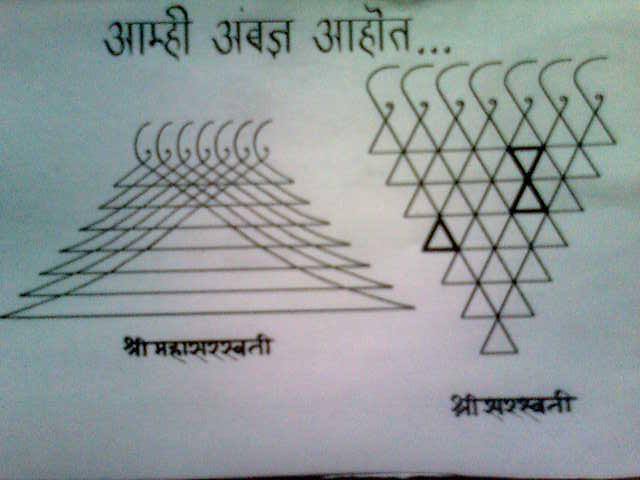 आम्ही अंबज्ञ आहोत...
श्री महासरस्वती
श्री सरस्वती